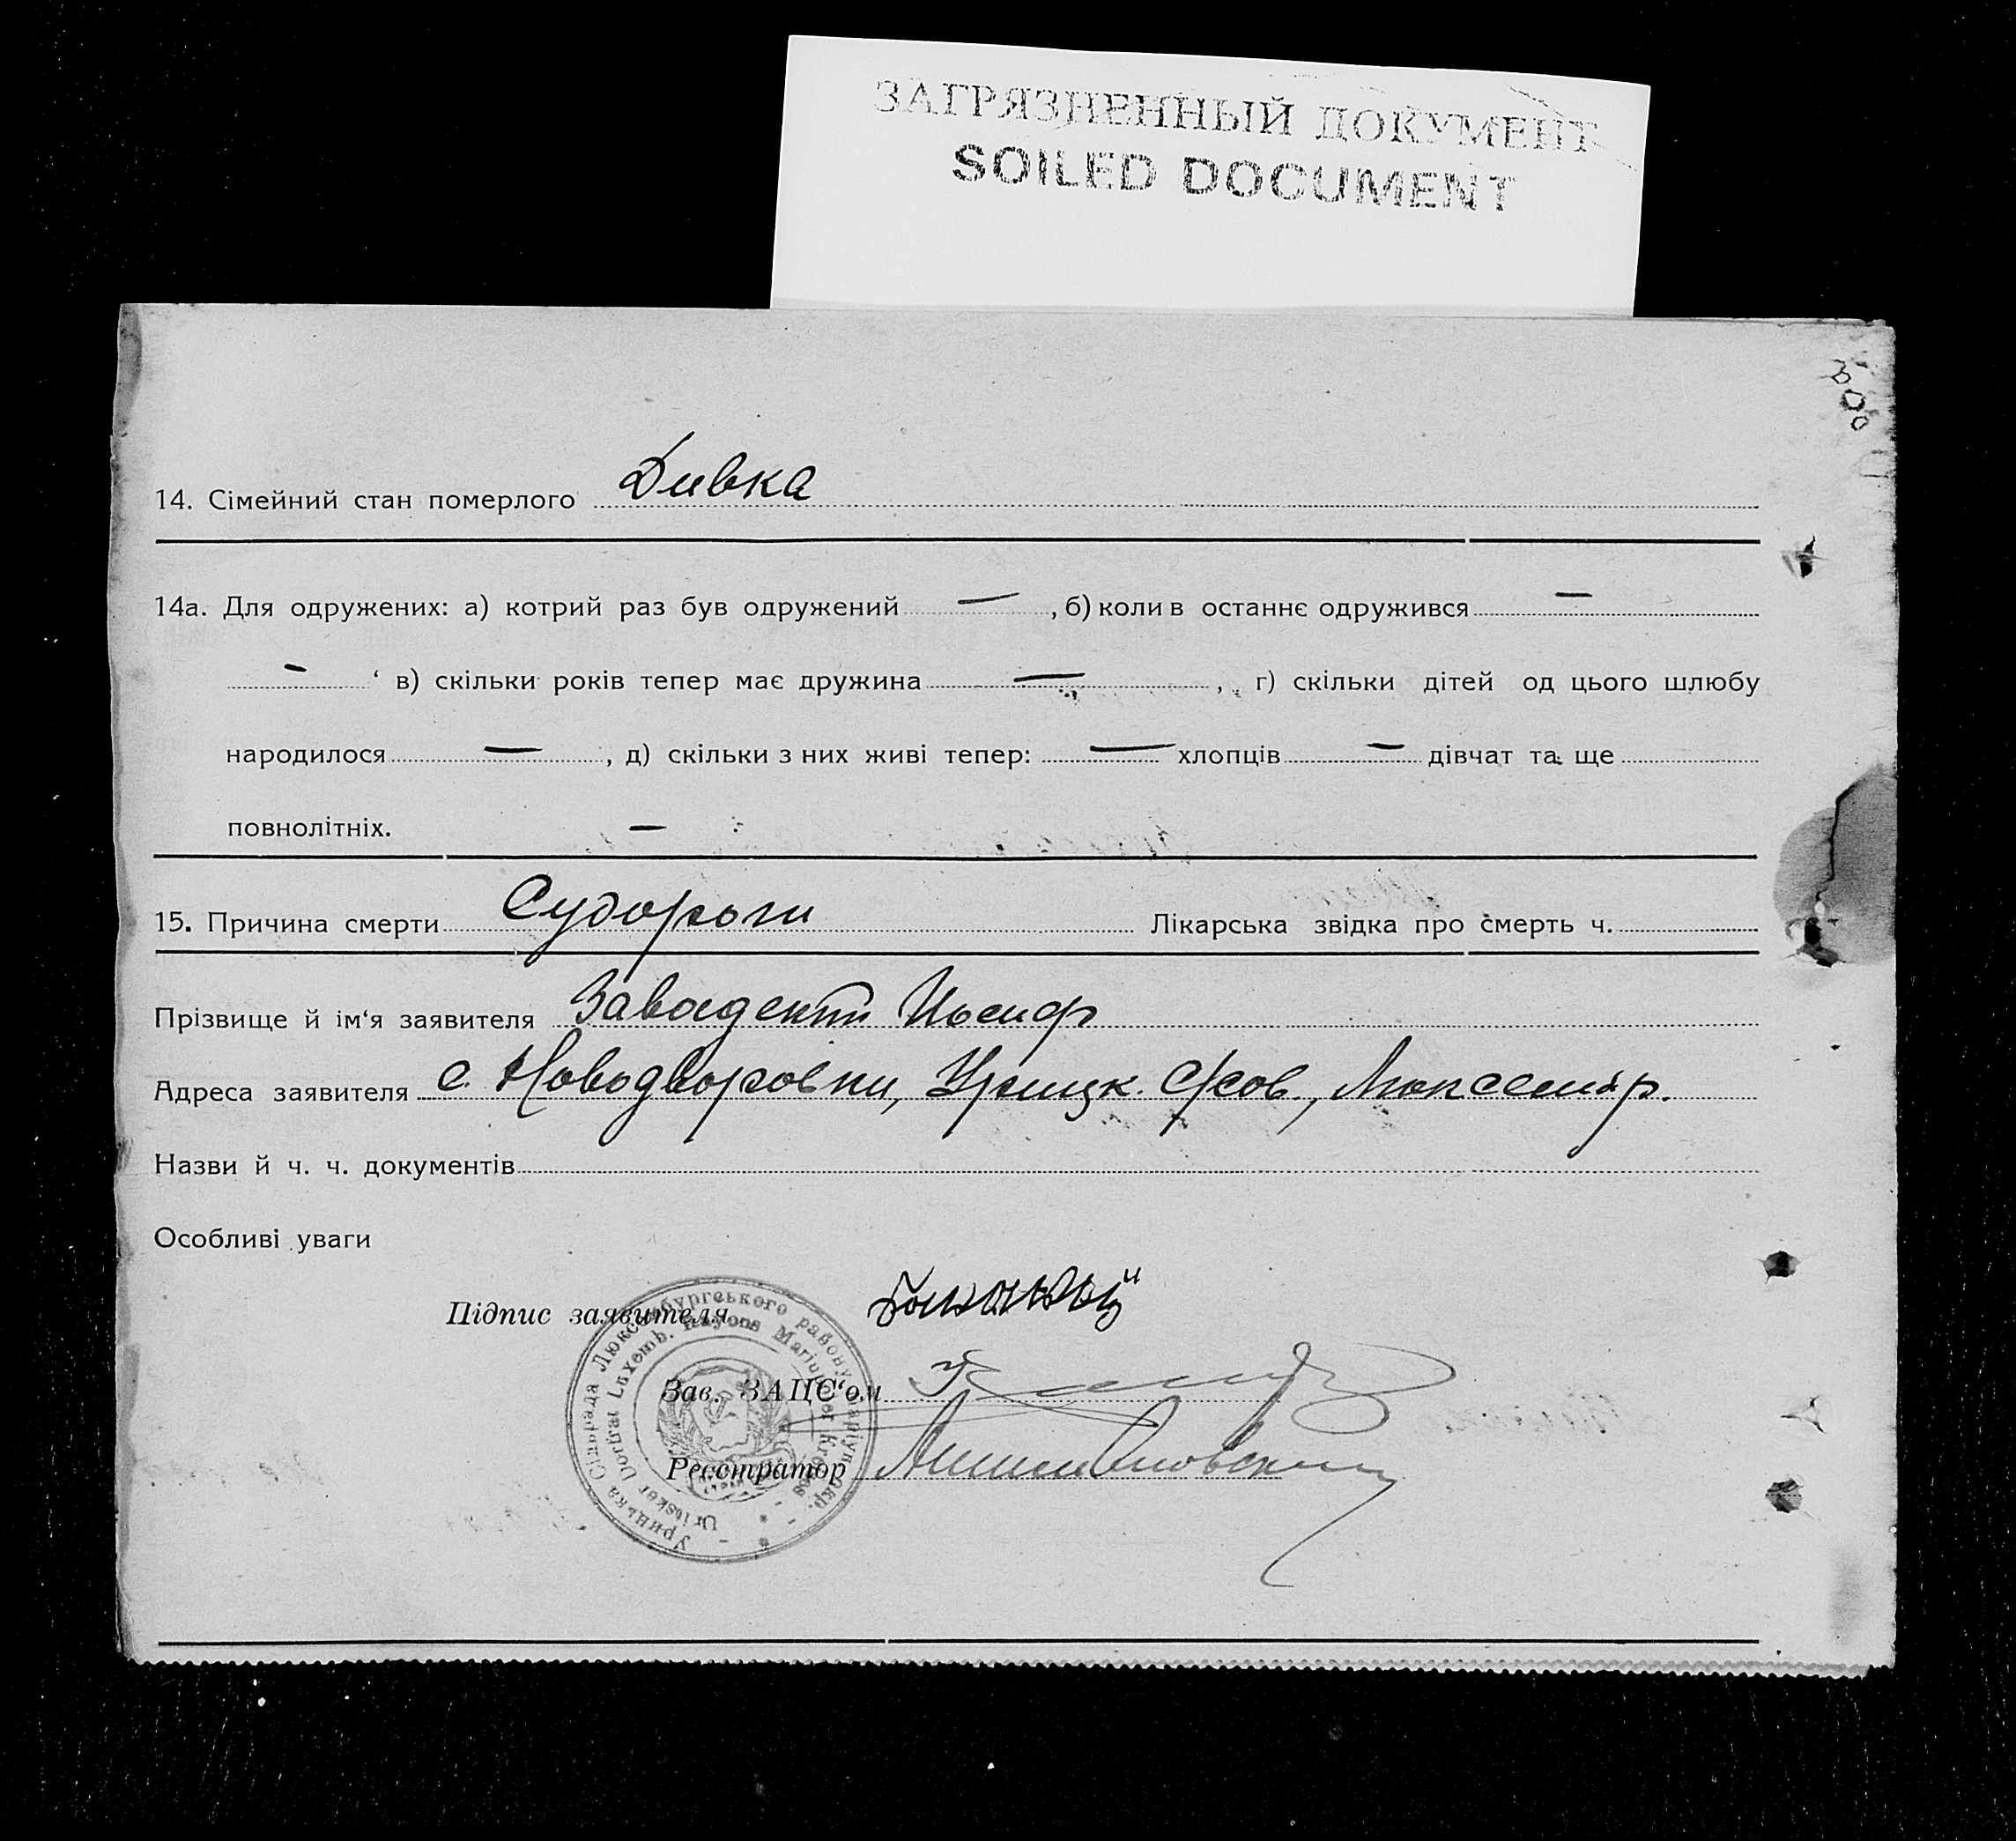 ЗАГРЯЗНЕННЫЙ ДОКУМЕНТ
SOILED DOCUMENT
14. Сімейний стан померлого Дивка
14а. Для одружених: а) котрий раз був одружений — , б) коли в останнє одружився —
— ‘ в) скільки років тепер має дружина — , г) скільки дітей од цього шлюбу
народилося — , д) скільки з них живі тепер: — хлопців — дівчат та ще
повнолітніх. —
15. Причина смерти Судороги Лікарська звідка про смерть ч.
Прізвище й ім‘я заявителя Иосиф
Адреса заявителя с. Новодворовки, Урицк. с/сов., Люксемб р.
Назви й ч. ч. документів
Особливі уваги
Підпис заявителя
Зав. ЗАЦС‘ом
Реєстратор
Урицька Сільрада Люксембургського району Маріуп. Окр.
Uritsker Dorfrat Luxemb. Rayons Mariupoler Kreises